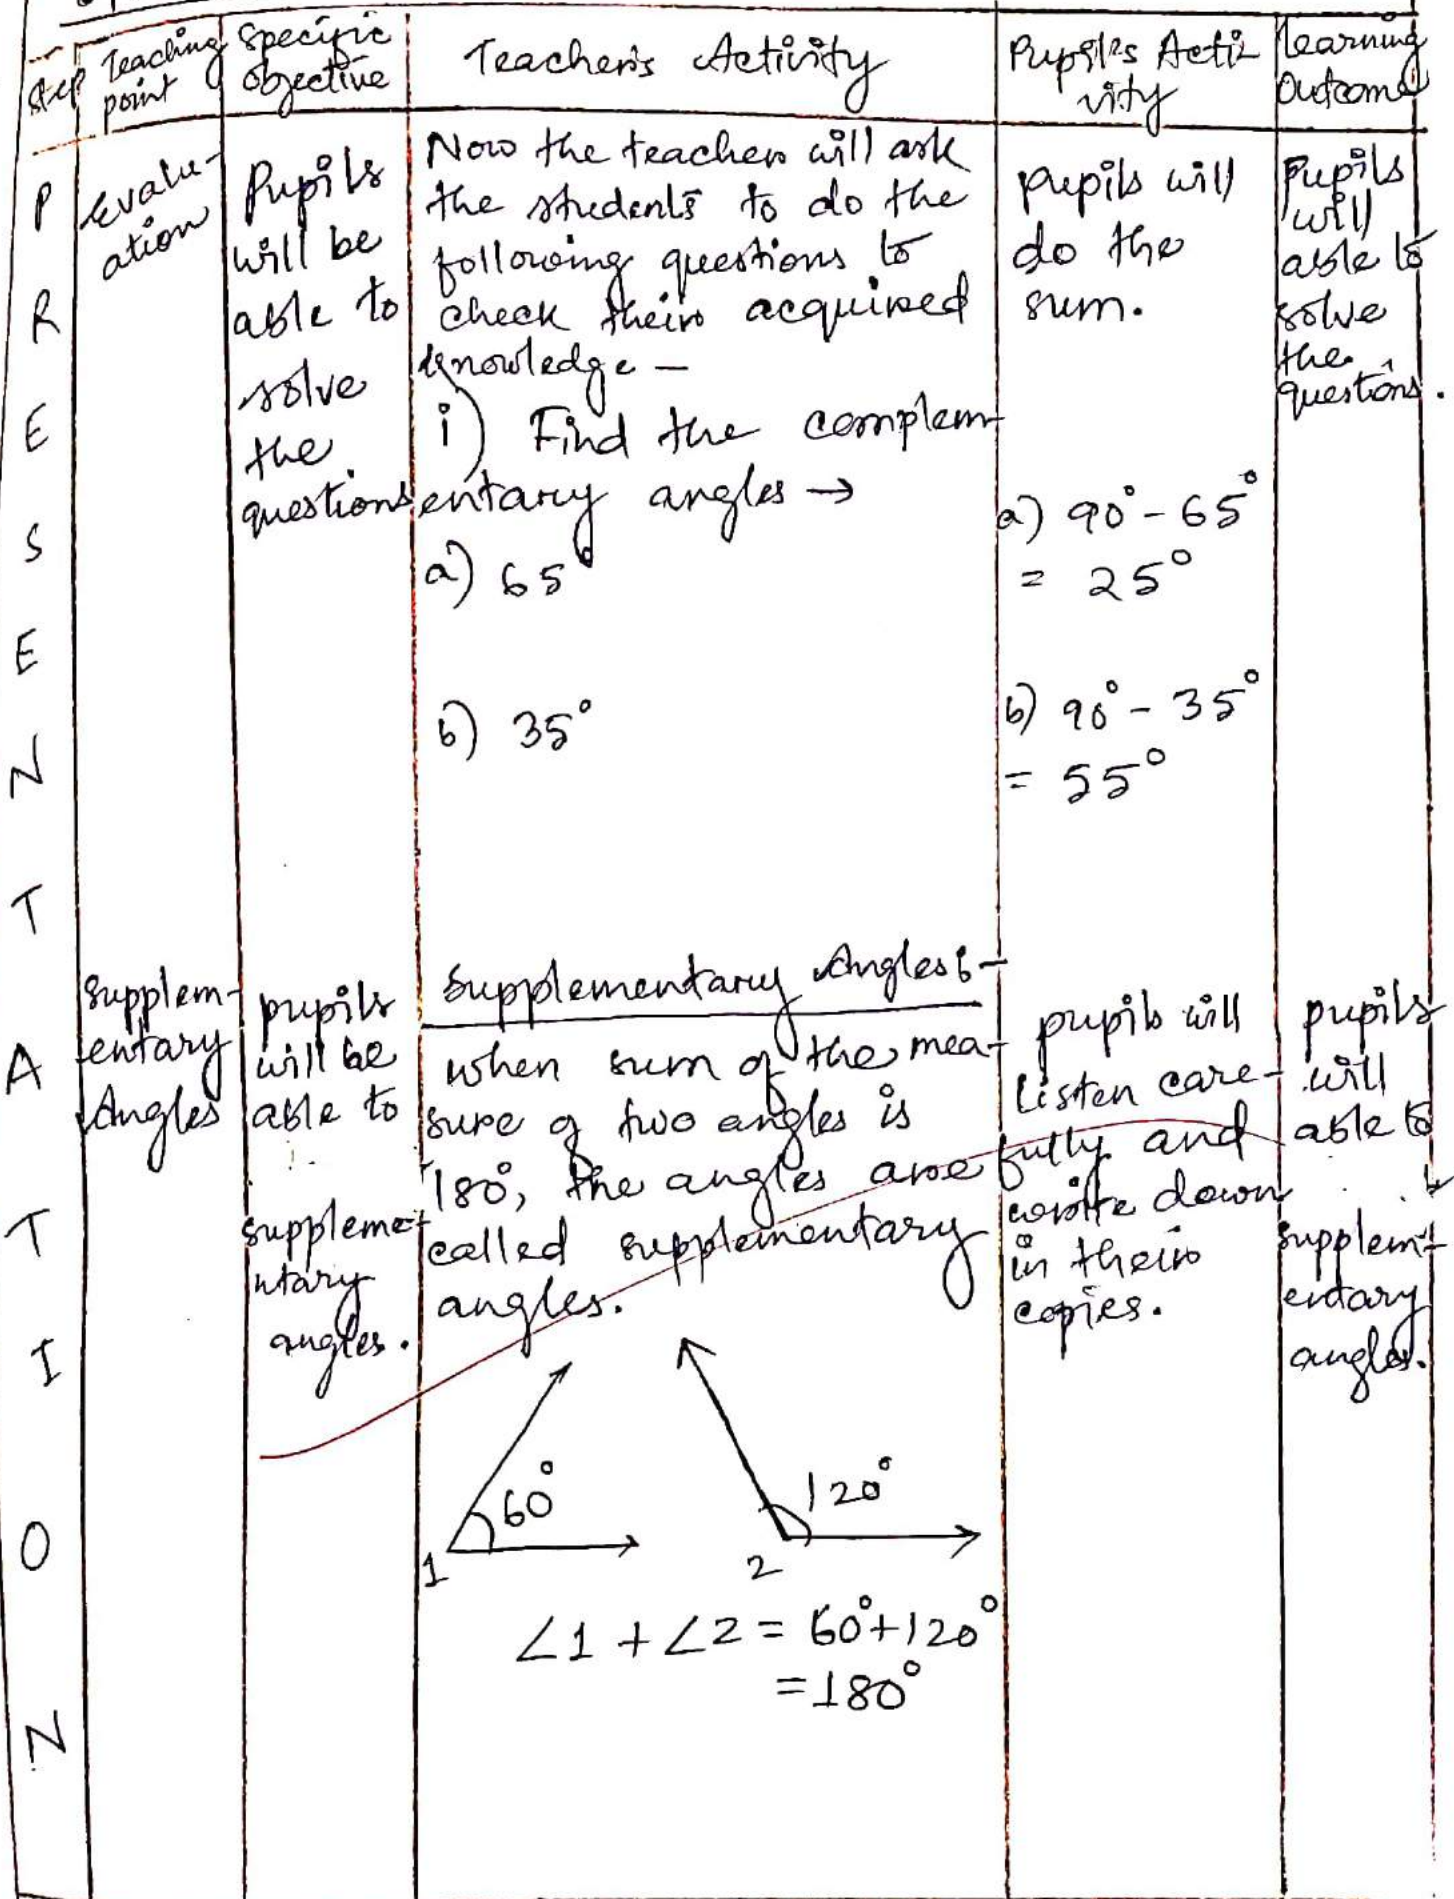 Step
Teaching
point
Specific
objective
Teacher's Activity
Pupil's Acti
vity
Learning
Outcome
P
R
E
S
E
N
T
A
T
I
O
N
Evalu-
ation
Pupils
will be
able to
solve
the
questions
Now the teacher will ask
the students to do the
following questions to
check their acquired
knowledge —
i) Find the complem-
entary angles →
a) 65°
b) 35°
pupils will
do the
sum.
a) 90° - 65°
= 25°
b) 90° - 35°
= 55°
Pupils
will
able to
solve
the
questions.
Supplem-
entary
Angles
pupils
will be
able to
suppleme-
ntary
angles.
Supplementary Angles :-
when sum of the mea-
sure of two angles is
180°, the angles are
called supplementary
angles.
60°
1
120°
2
∠1 + ∠2 = 60° + 120°
= 180°
pupils will
Listen care-
fully and
write down
in their
copies.
pupils
will
able to
supplem-
entary
angles.